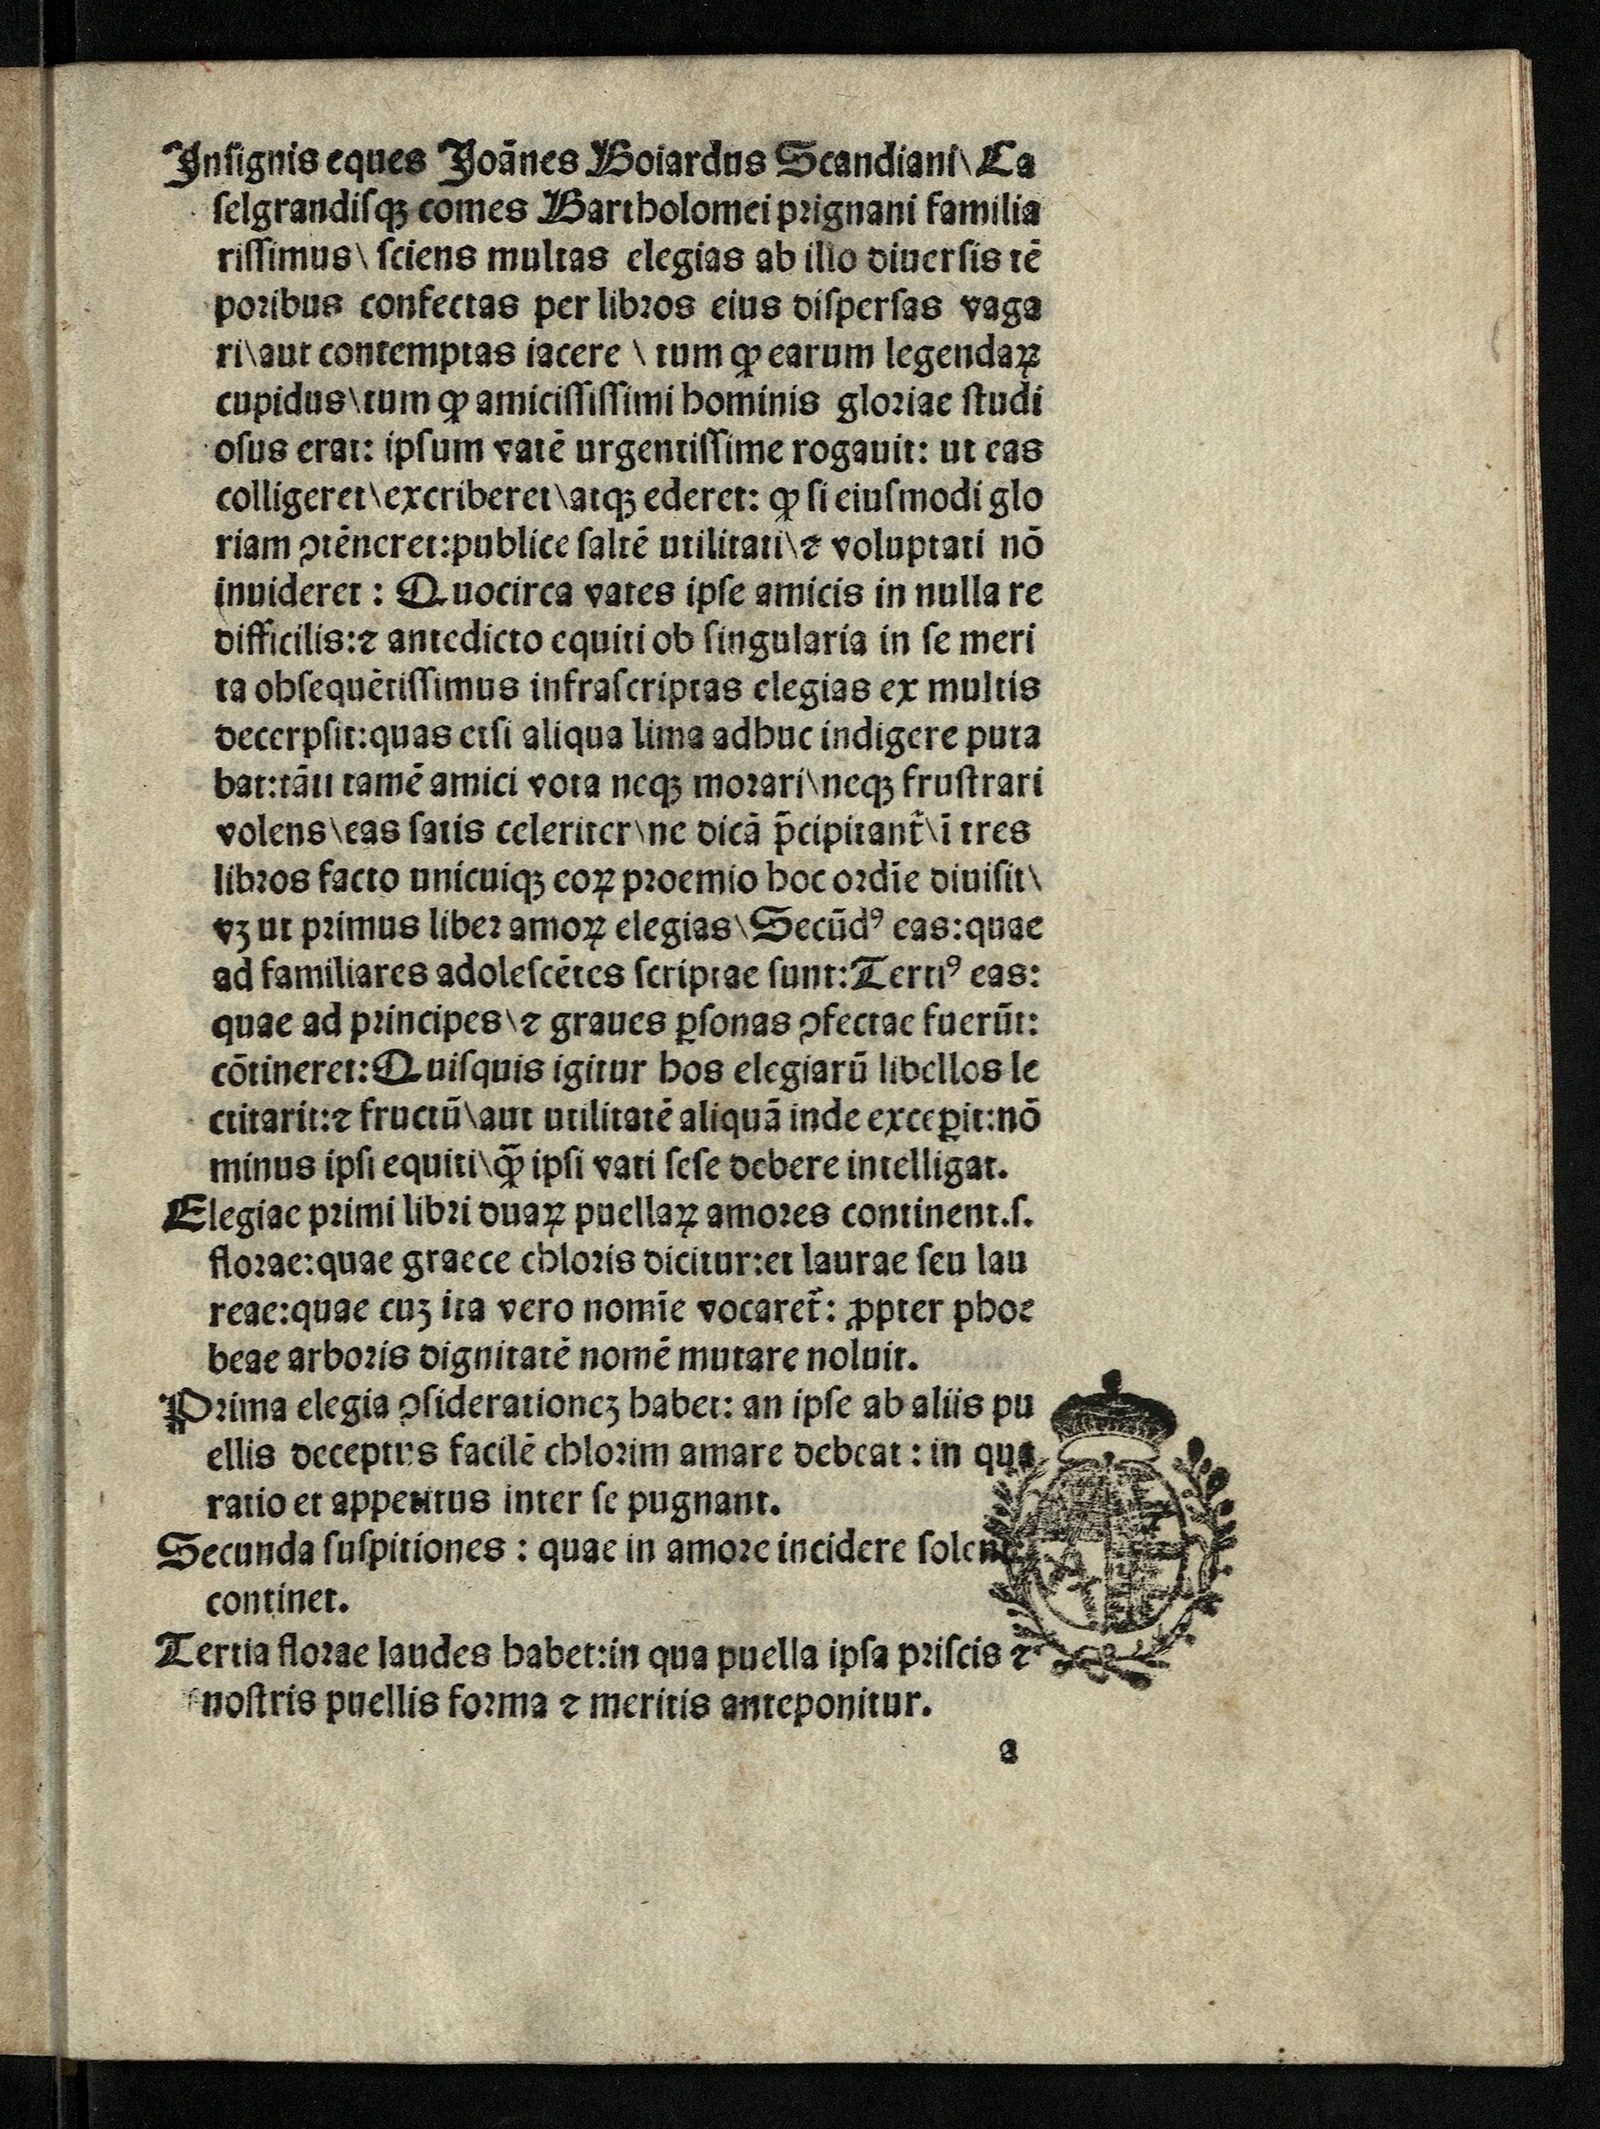 Inſignis eques Joãnes Boiardus Scandiani\ Ca
ſelgrandiſqꝫ comes Bartholomei prignani familia
riſſimus\ ſciens multas elegias ab illo diuerſis tẽ
poribus confectas per libros eius diſperſas vaga
ri\aut contemptas iacere \ tum ꝙ earum legendaꝝ
cupidus\tum ꝙ amiciſſiſſimi hominis gloriae ſtudi
oſus erat: ipſum vatẽ urgentiſſime rogauit: ut eas
colligeret\excriberet\atqꝫ ederet: ꝙ ſi eiuſmodi glo
riam ꝯtẽneret:publice ſaltẽ utilitati\⁊ voluptati nõ
inuideret : Quocirca vates ipſe amicis in nulla re
difficilis:⁊ antedicto equiti ob ſingularia in ſe meri
ta obſequẽtiſſimus infraſcriptas elegias ex multis
decerpſit:quas etſi aliqua lima adhuc indigere puta
bat:tãti tamẽ amici vota neqꝫ morari\neqꝫ fruſtrari
volens\eas ſatis celeriter\ne dicã p̃cipitant᷑\ĩ tres
libros facto unicuiqꝫ eoꝝ proemio hoc ordĩe diuiſit\
vꝫ ut primus liber amoꝝ elegias\Secũdꝰ eas:quae
ad familiares adoleſcẽtes ſcriptae ſunt:Tertiꝰ eas:
quae ad principes\⁊ graues ꝑſonas ꝯfectae fuerũt:
cõtineret:Quiſquis igitur hos elegiarũ libellos le
ctitarit:⁊ fructũ\aut utilitatẽ aliquã inde exceꝑit:nõ
minus ipſi equiti\ꝙ̃ ipſi vati ſeſe debere intelligat.
Elegiae primi libri duaꝝ puellaꝝ amores continent.ſ.
florae:quae graece chloris dicitur:et laurae ſeu lau
reae:quae cuꝫ ita vero nomĩe vocaret᷑: ꝓpter phoe
beae arboris dignitatẽ nomẽ mutare noluit.
Prima elegia ꝯſiderationeꝫ habet: an ipſe ab aliis pu
ellis deceptus facilẽ chlorim amare debeat : in qua
ratio et appetitus inter ſe pugnant.
Secunda ſuſpitiones : quae in amore incidere ſolent
continet.
Tertia florae laudes habet:in qua puella ipſa priſcis ⁊
noſtris puellis forma ⁊ meritis anteponitur.
a